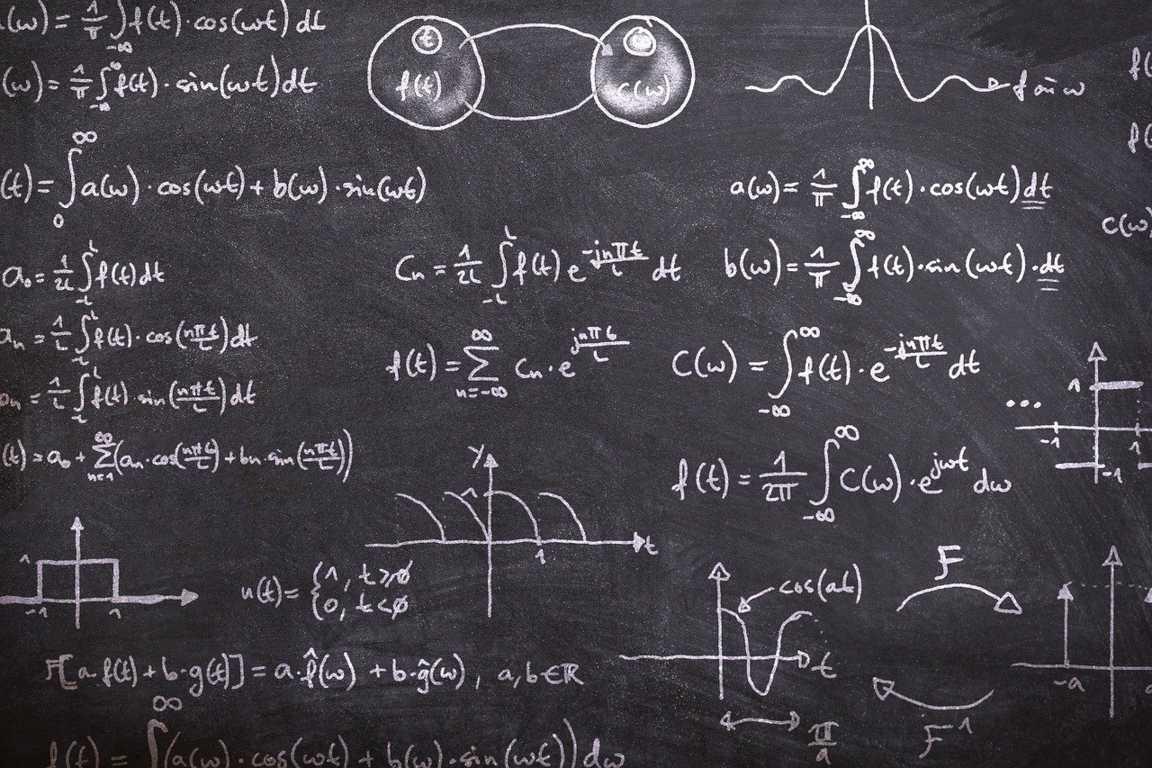 (ω) = 1/π ∫_{-∞} f(t)·cos(ωt) dt
(ω) = 1/π ∫_{-∞}^{∞} f(t)·sin(ωt) dt
t
f(t)
c(ω)
f ω
f(
f(
(t) = ∫_0^∞ a(ω)·cos(ωt) + b(ω)·sin(ωt)
a(ω) = 1/π ∫_{-∞}^{∞} f(t)·cos(ωt) dt
c(ω)
a₀ = 1/2L ∫_{-L}^{L} f(t) dt
Cn = 1/2L ∫_{-L}^{L} f(t) e^{-jnπt/L} dt
b(ω) = 1/π ∫_{-∞}^{∞} f(t)·sin(ωt)·dt
an = 1/L ∫_{-L}^{L} f(t)·cos(nπt/L) dt
f(t) = ∑_{n=-∞}^{∞} Cn·e^{jnπt/L}
C(ω) = ∫_{-∞}^{∞} f(t)·e^{-jnπt/L} dt
n = 1/L ∫_{-L}^{L} f(t)·sin(nπt/L) dt
1
...
-1 1
-1
(t) = a₀ + ∑_{n=1}^{∞} (an·cos(nπt/L) + bn·sin(nπt/L))
f(t) = 1/2π ∫_{-∞}^{∞} C(ω)·e^{jωt} dω
y
1
1
t
1
-1 1
u(t) = {1, t ≥ 0
{0, t < 0
cos(at)
t
π/a
F
F⁻¹
-a
F[a·f(t) + b·g(t)] = a·f̂(ω) + b·ĝ(ω), a,b ∈ ℝ
f(t) = ∫^∞ (a(ω)·cos(ωt) + b(ω)·sin(ωt)) dω